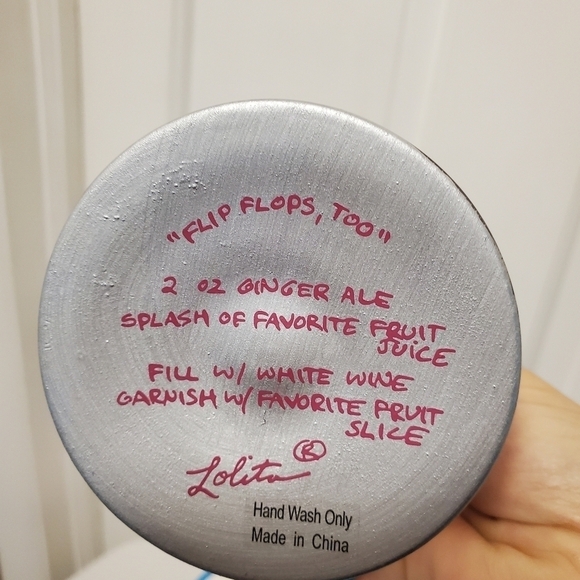 "FLIP FLOPS, TOO"
2 OZ GINGER ALE
SPLASH OF FAVORITE FRUIT
JUICE
FILL W/ WHITE WINE
GARNISH W/ FAVORITE FRUIT
SLICE
Lolita ®
Hand Wash Only
Made in China